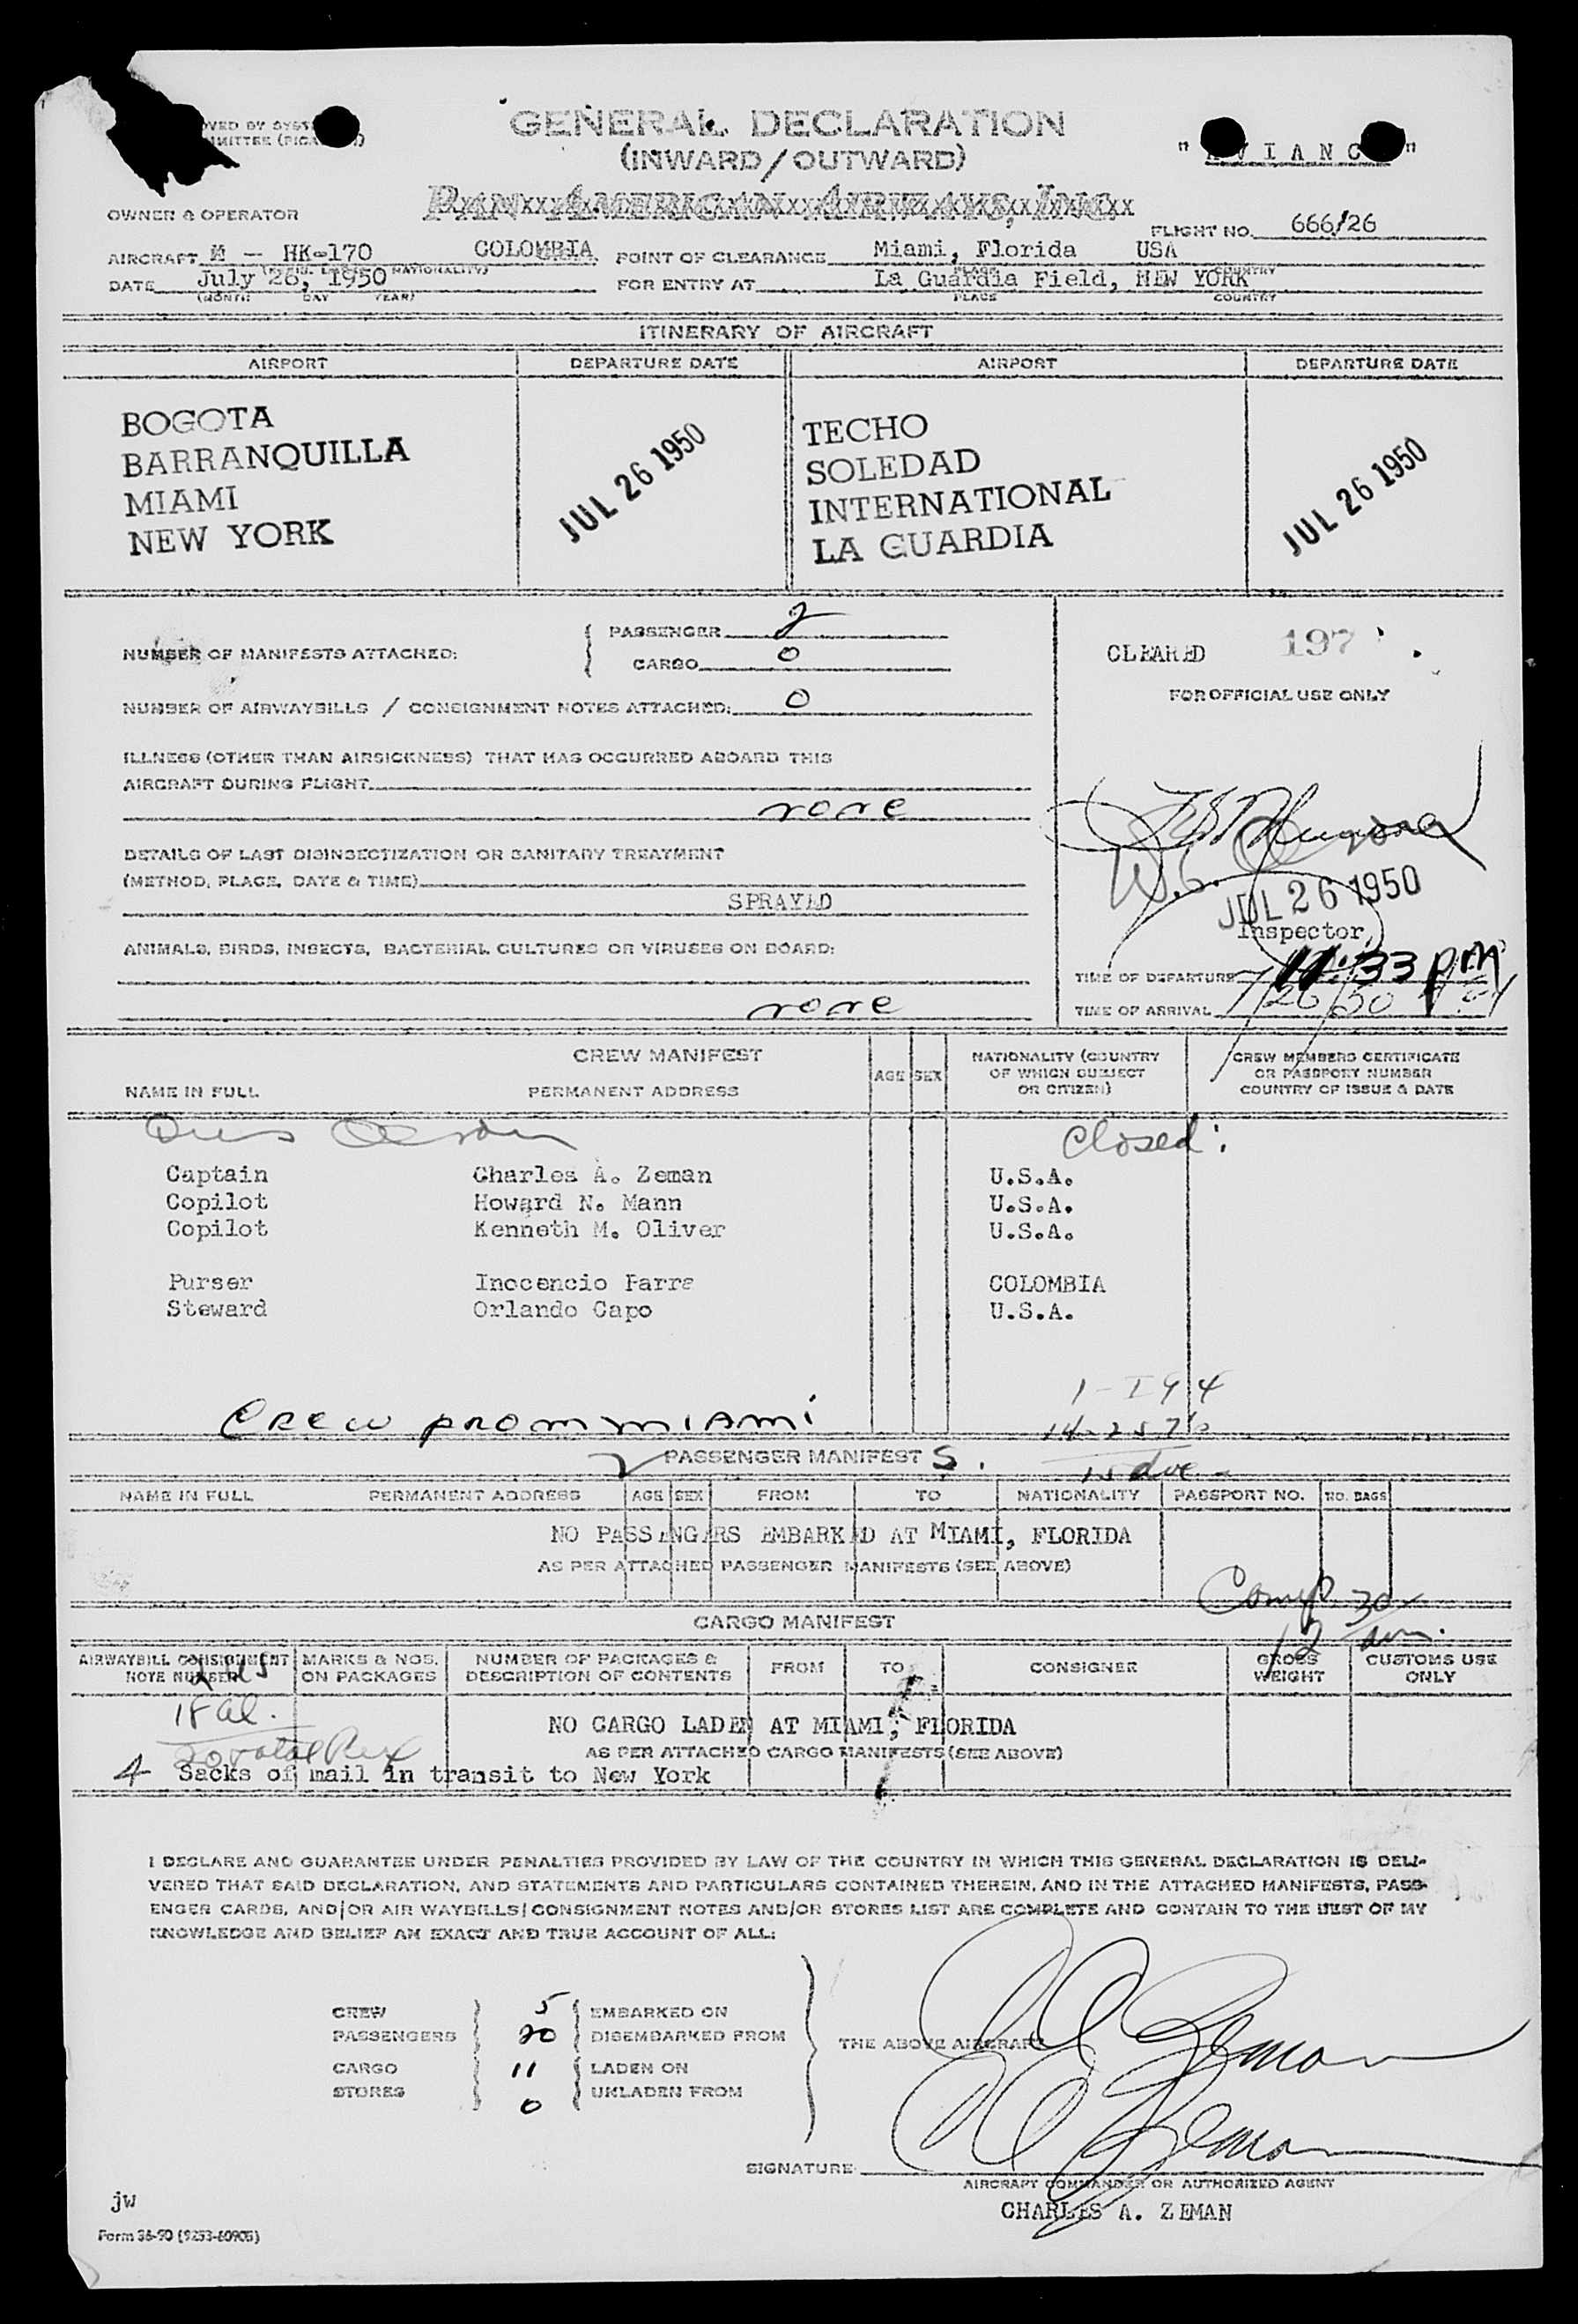 GENERAL DECLARATION
(INWARD/OUTWARD)
PAN AMERICAN AIRWAYS, INC.
OWNER & OPERATOR
FLIGHT NO. 666/26
AIRCRAFT M - HK-170 COLOMBIA POINT OF CLEARANCE Miami, Florida USA
NATIONALITY) PLACE COUNTRY
DATE July 26, 1950 FOR ENTRY AT La Guardia Field, NEW YORK
(MONTH DAY YEAR) PLACE COUNTRY
ITINERARY OF AIRCRAFT
AIRPORT DEPARTURE DATE AIRPORT DEPARTURE DATE
BOGOTA TECHO
BARRANQUILLA JUL 26 1950 SOLEDAD JUL 26 1950
MIAMI INTERNATIONAL
NEW YORK LA GUARDIA
NUMBER OF MANIFESTS ATTACHED: { PASSENGER 2
CARGO 0
CLEARED 197
NUMBER OF AIRWAYBILLS / CONSIGNMENT NOTES ATTACHED: 0
FOR OFFICIAL USE ONLY
ILLNESS (OTHER THAN AIRSICKNESS) THAT HAS OCCURRED ABOARD THIS
AIRCRAFT DURING FLIGHT
none
DETAILS OF LAST DISINSECTIZATION OR SANITARY TREATMENT
(METHOD, PLACE, DATE & TIME)
SPRAYED
JUL 26 1950
Inspector,
ANIMALS, BIRDS, INSECTS, BACTERIAL CULTURES OR VIRUSES ON BOARD:
none
TIME OF DEPARTURE 11:33 PM
TIME OF ARRIVAL 7/26/50
CREW MANIFEST
NAME IN FULL PERMANENT ADDRESS AGE SEX NATIONALITY (COUNTRY OF WHICH SUBJECT OR CITIZEN) CREW MEMBERS CERTIFICATE OR PASSPORT NUMBER COUNTRY OF ISSUE & DATE
Closed:
Captain Charles A. Zeman U.S.A.
Copilot Howard N. Mann U.S.A.
Copilot Kenneth M. Oliver U.S.A.
Purser Inocencio Parra COLOMBIA
Steward Orlando Capo U.S.A.
1 - I 94
14-257
CREW FROM MIAMI
PASSENGER MANIFEST S.
NAME IN FULL PERMANENT ADDRESS AGE SEX FROM TO NATIONALITY PASSPORT NO. NO. BAGS
NO PASSENGERS EMBARKED AT MIAMI, FLORIDA
AS PER ATTACHED PASSENGER MANIFESTS (SEE ABOVE)
CARGO MANIFEST
AIRWAYBILL CONSIGNMENT NOTE NUMBER MARKS & NOS. ON PACKAGES NUMBER OF PACKAGES & DESCRIPTION OF CONTENTS FROM TO CONSIGNEE GROSS WEIGHT CUSTOMS USE ONLY
18 al.
NO CARGO LADEN AT MIAMI, FLORIDA
AS PER ATTACHED CARGO MANIFESTS (SEE ABOVE)
4 Sacks of mail in transit to New York
I DECLARE AND GUARANTEE UNDER PENALTIES PROVIDED BY LAW OF THE COUNTRY IN WHICH THIS GENERAL DECLARATION IS DELI-
VERED THAT SAID DECLARATION, AND STATEMENTS AND PARTICULARS CONTAINED THEREIN, AND IN THE ATTACHED MANIFESTS, PASS-
ENGER CARDS, AND/OR AIR WAYBILLS/CONSIGNMENT NOTES AND/OR STORES LIST ARE COMPLETE AND CONTAIN TO THE BEST OF MY
KNOWLEDGE AND BELIEF AN EXACT AND TRUE ACCOUNT OF ALL:
CREW 5 EMBARKED ON
PASSENGERS 20 DISEMBARKED FROM
THE ABOVE AIRCRAFT
CARGO 11 LADEN ON
STORES 0 UNLADEN FROM
SIGNATURE
AIRCRAFT COMMANDER OR AUTHORIZED AGENT
CHARLES A. ZEMAN
jw
Form 36-90 (9253-60905)